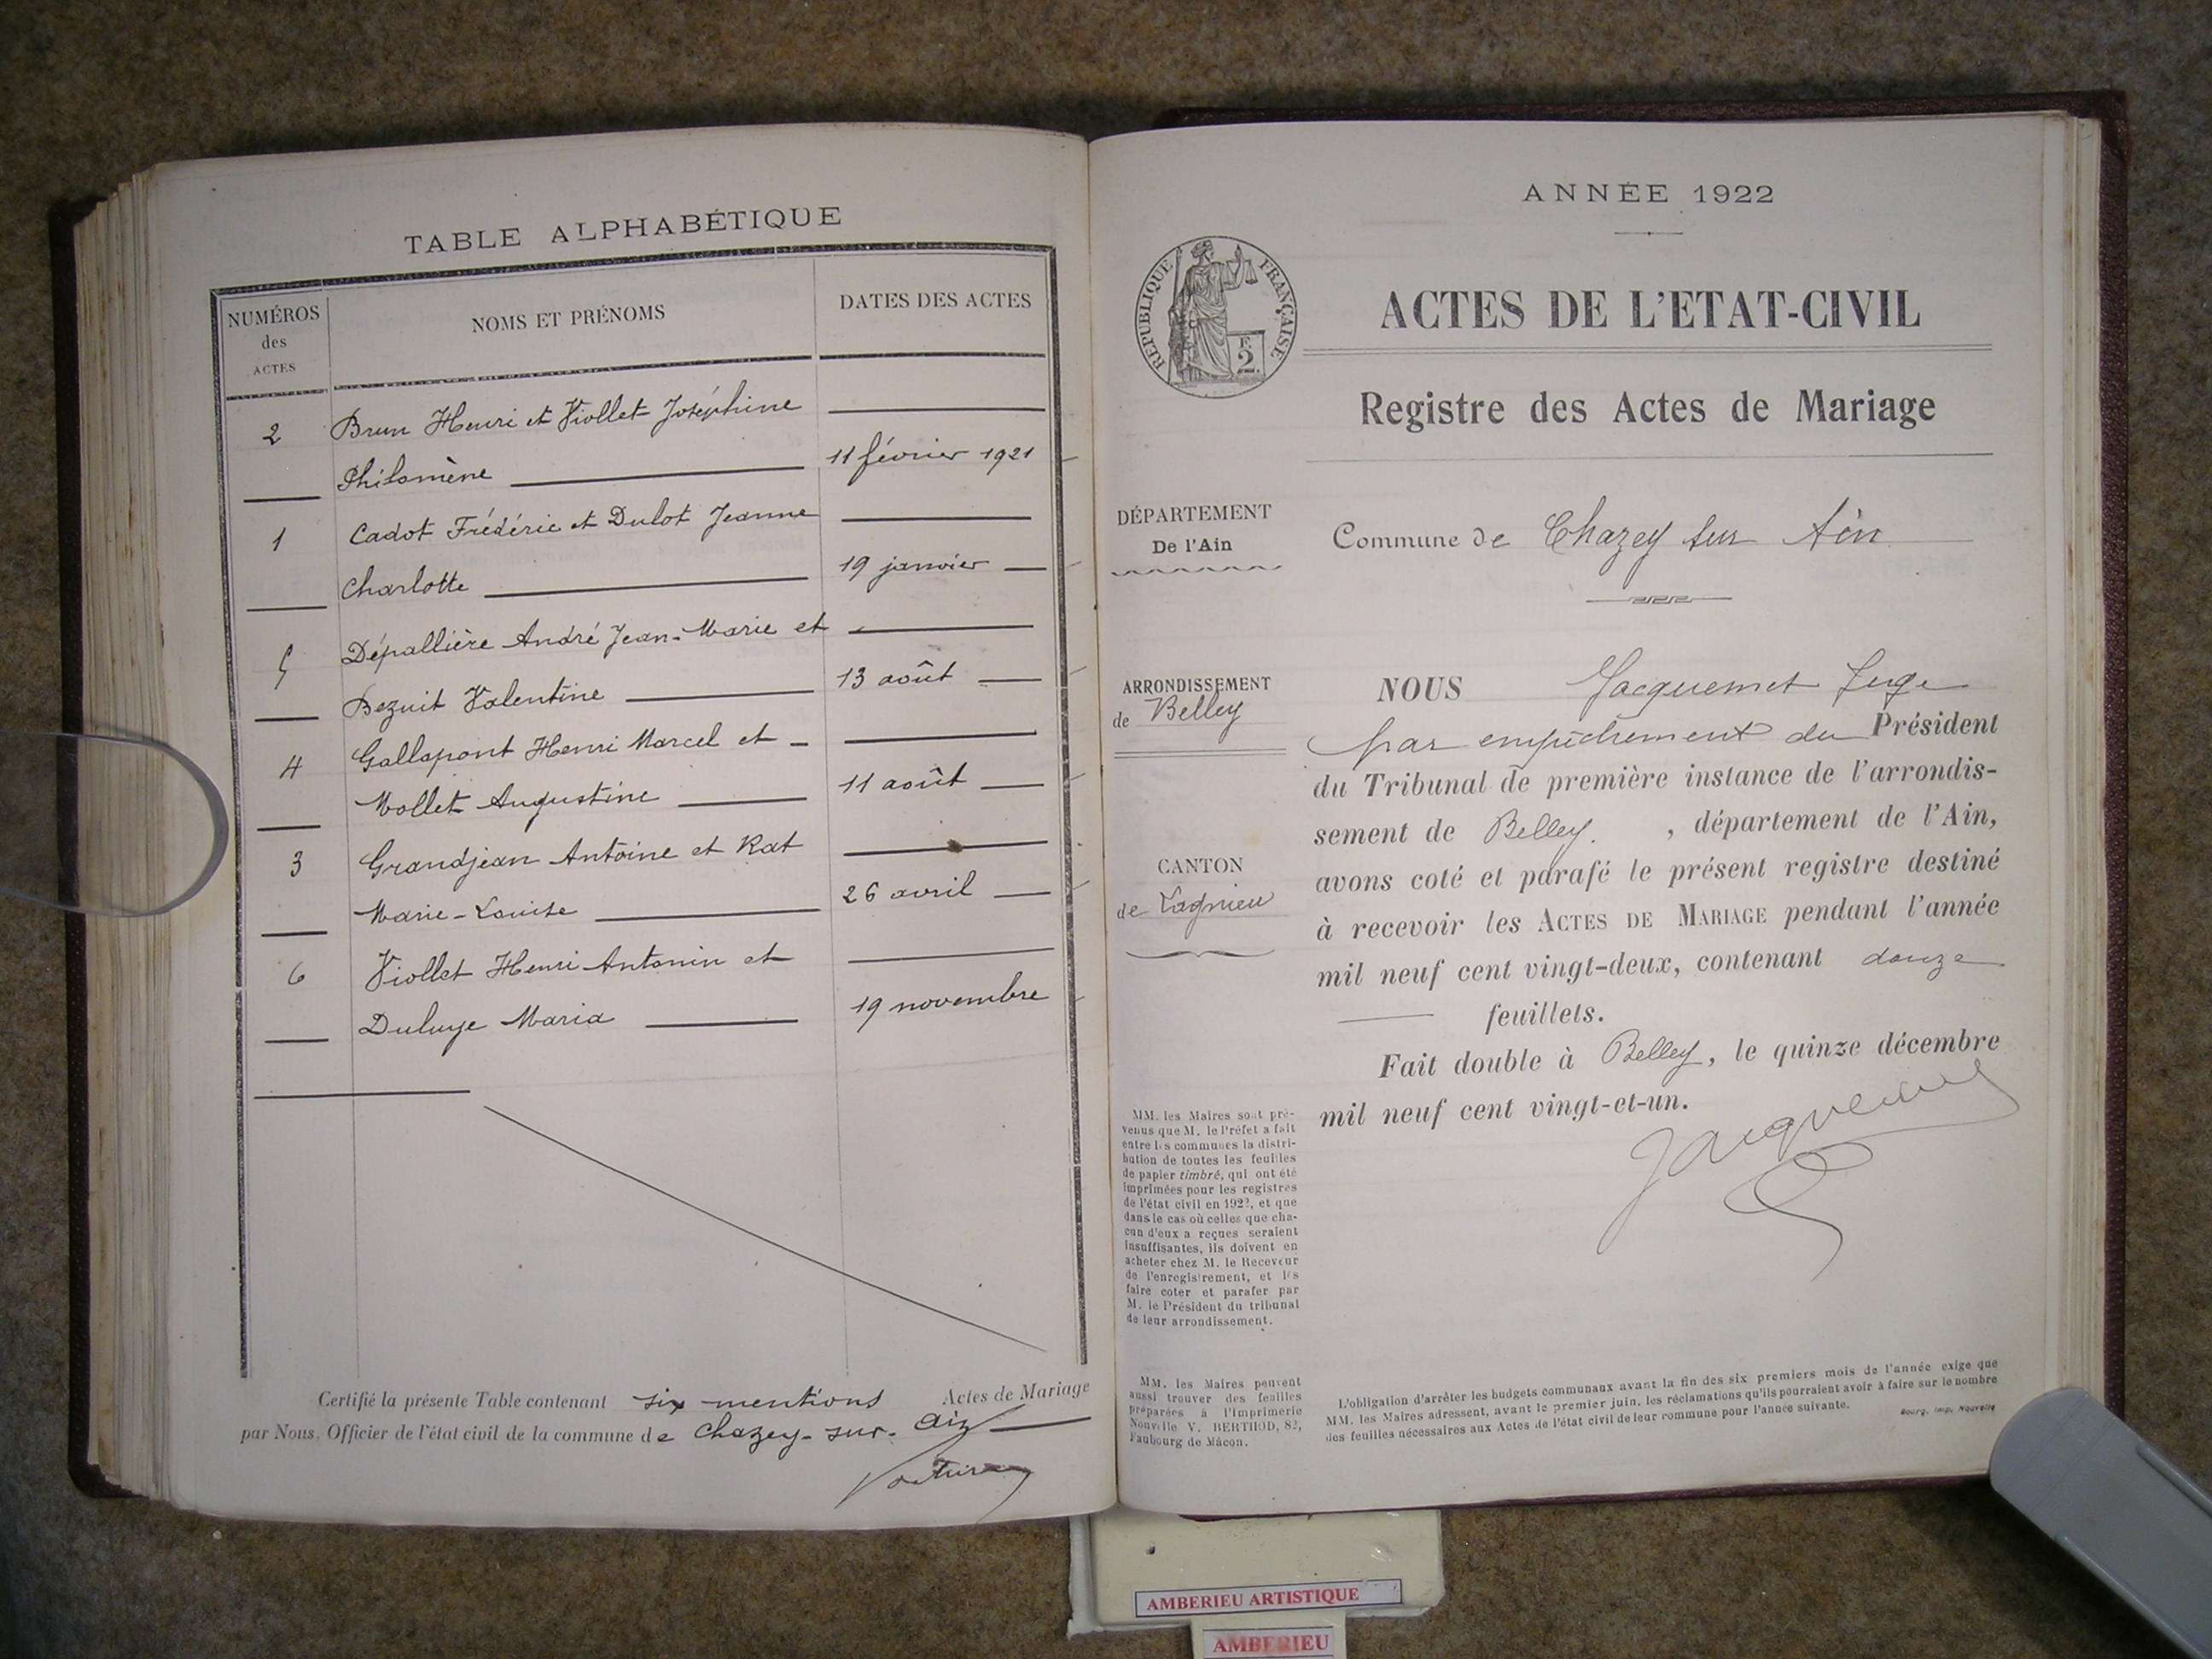 TABLE ALPHABÉTIQUE
NUMÉROS
des
ACTES
NOMS ET PRÉNOMS
DATES DES ACTES
2 Brun Henri et Viollet Joséphine
Philomène 11 février 1921
1 Cadot Frédéric et Dulot Jeanne
Charlotte 19 janvier
5 Dépallière André Jean-Marie et
Bezuit Valentine 13 août
4 Gallapont Henri Marcel et
Mollet Augustine 11 août
3 Grandjean Antoine et Rat
Marie-Louise 26 avril
6 Viollet Henri Antonin et
Maria 19 novembre
Certifié la présente Table contenant six mentions Actes de Mariage
par Nous, Officier de l'état civil de la commune de Chazey-sur-Ain
ANNÉE 1922
RÉPUBLIQUE FRANÇAISE
2
ACTES DE L'ETAT-CIVIL
Registre des Actes de Mariage
DÉPARTEMENT
De l'Ain
Commune de Chazey sur Ain
ARRONDISSEMENT
de Belley
CANTON
de Lagnieu
NOUS Jacquemet Juge
par empêchement du Président
du Tribunal de première instance de l'arrondis-
sement de Belley, département de l'Ain,
avons coté et parafé le présent registre destiné
à recevoir les ACTES DE MARIAGE pendant l'année
mil neuf cent vingt-deux, contenant douze
feuillets.
Fait double à Belley, le quinze décembre
mil neuf cent vingt-et-un.
Jacquemet
MM. les Maires sont pré-
venus que M. le Préfet a fait
entre les communes la distri-
bution de toutes les feuilles
de papier timbré, qui ont été
imprimées pour les registres
de l'état civil en 1922, et que
dans le cas où celles que cha-
cun d'eux a reçues seraient
insuffisantes, ils doivent en
acheter chez M. le Receveur
de l'enregistrement, et les
faire coter et parafer par
M. le Président du tribunal
de leur arrondissement.
MM. les Maires peuvent
aussi trouver des feuilles
préparées à l'imprimerie
Nouvelle V. BERTHOD, 82,
Faubourg de Mâcon.
L'obligation d'arrêter les budgets communaux avant la fin des six premiers mois de l'année exige que
MM. les Maires adressent, avant le premier juin, les réclamations qu'ils pourraient avoir à faire sur le nombre
des feuilles nécessaires aux Actes de l'état civil de leur commune pour l'année suivante.
Bourg, Imp. Nouvelle
AMBERIEU ARTISTIQUE
AMBERIEU